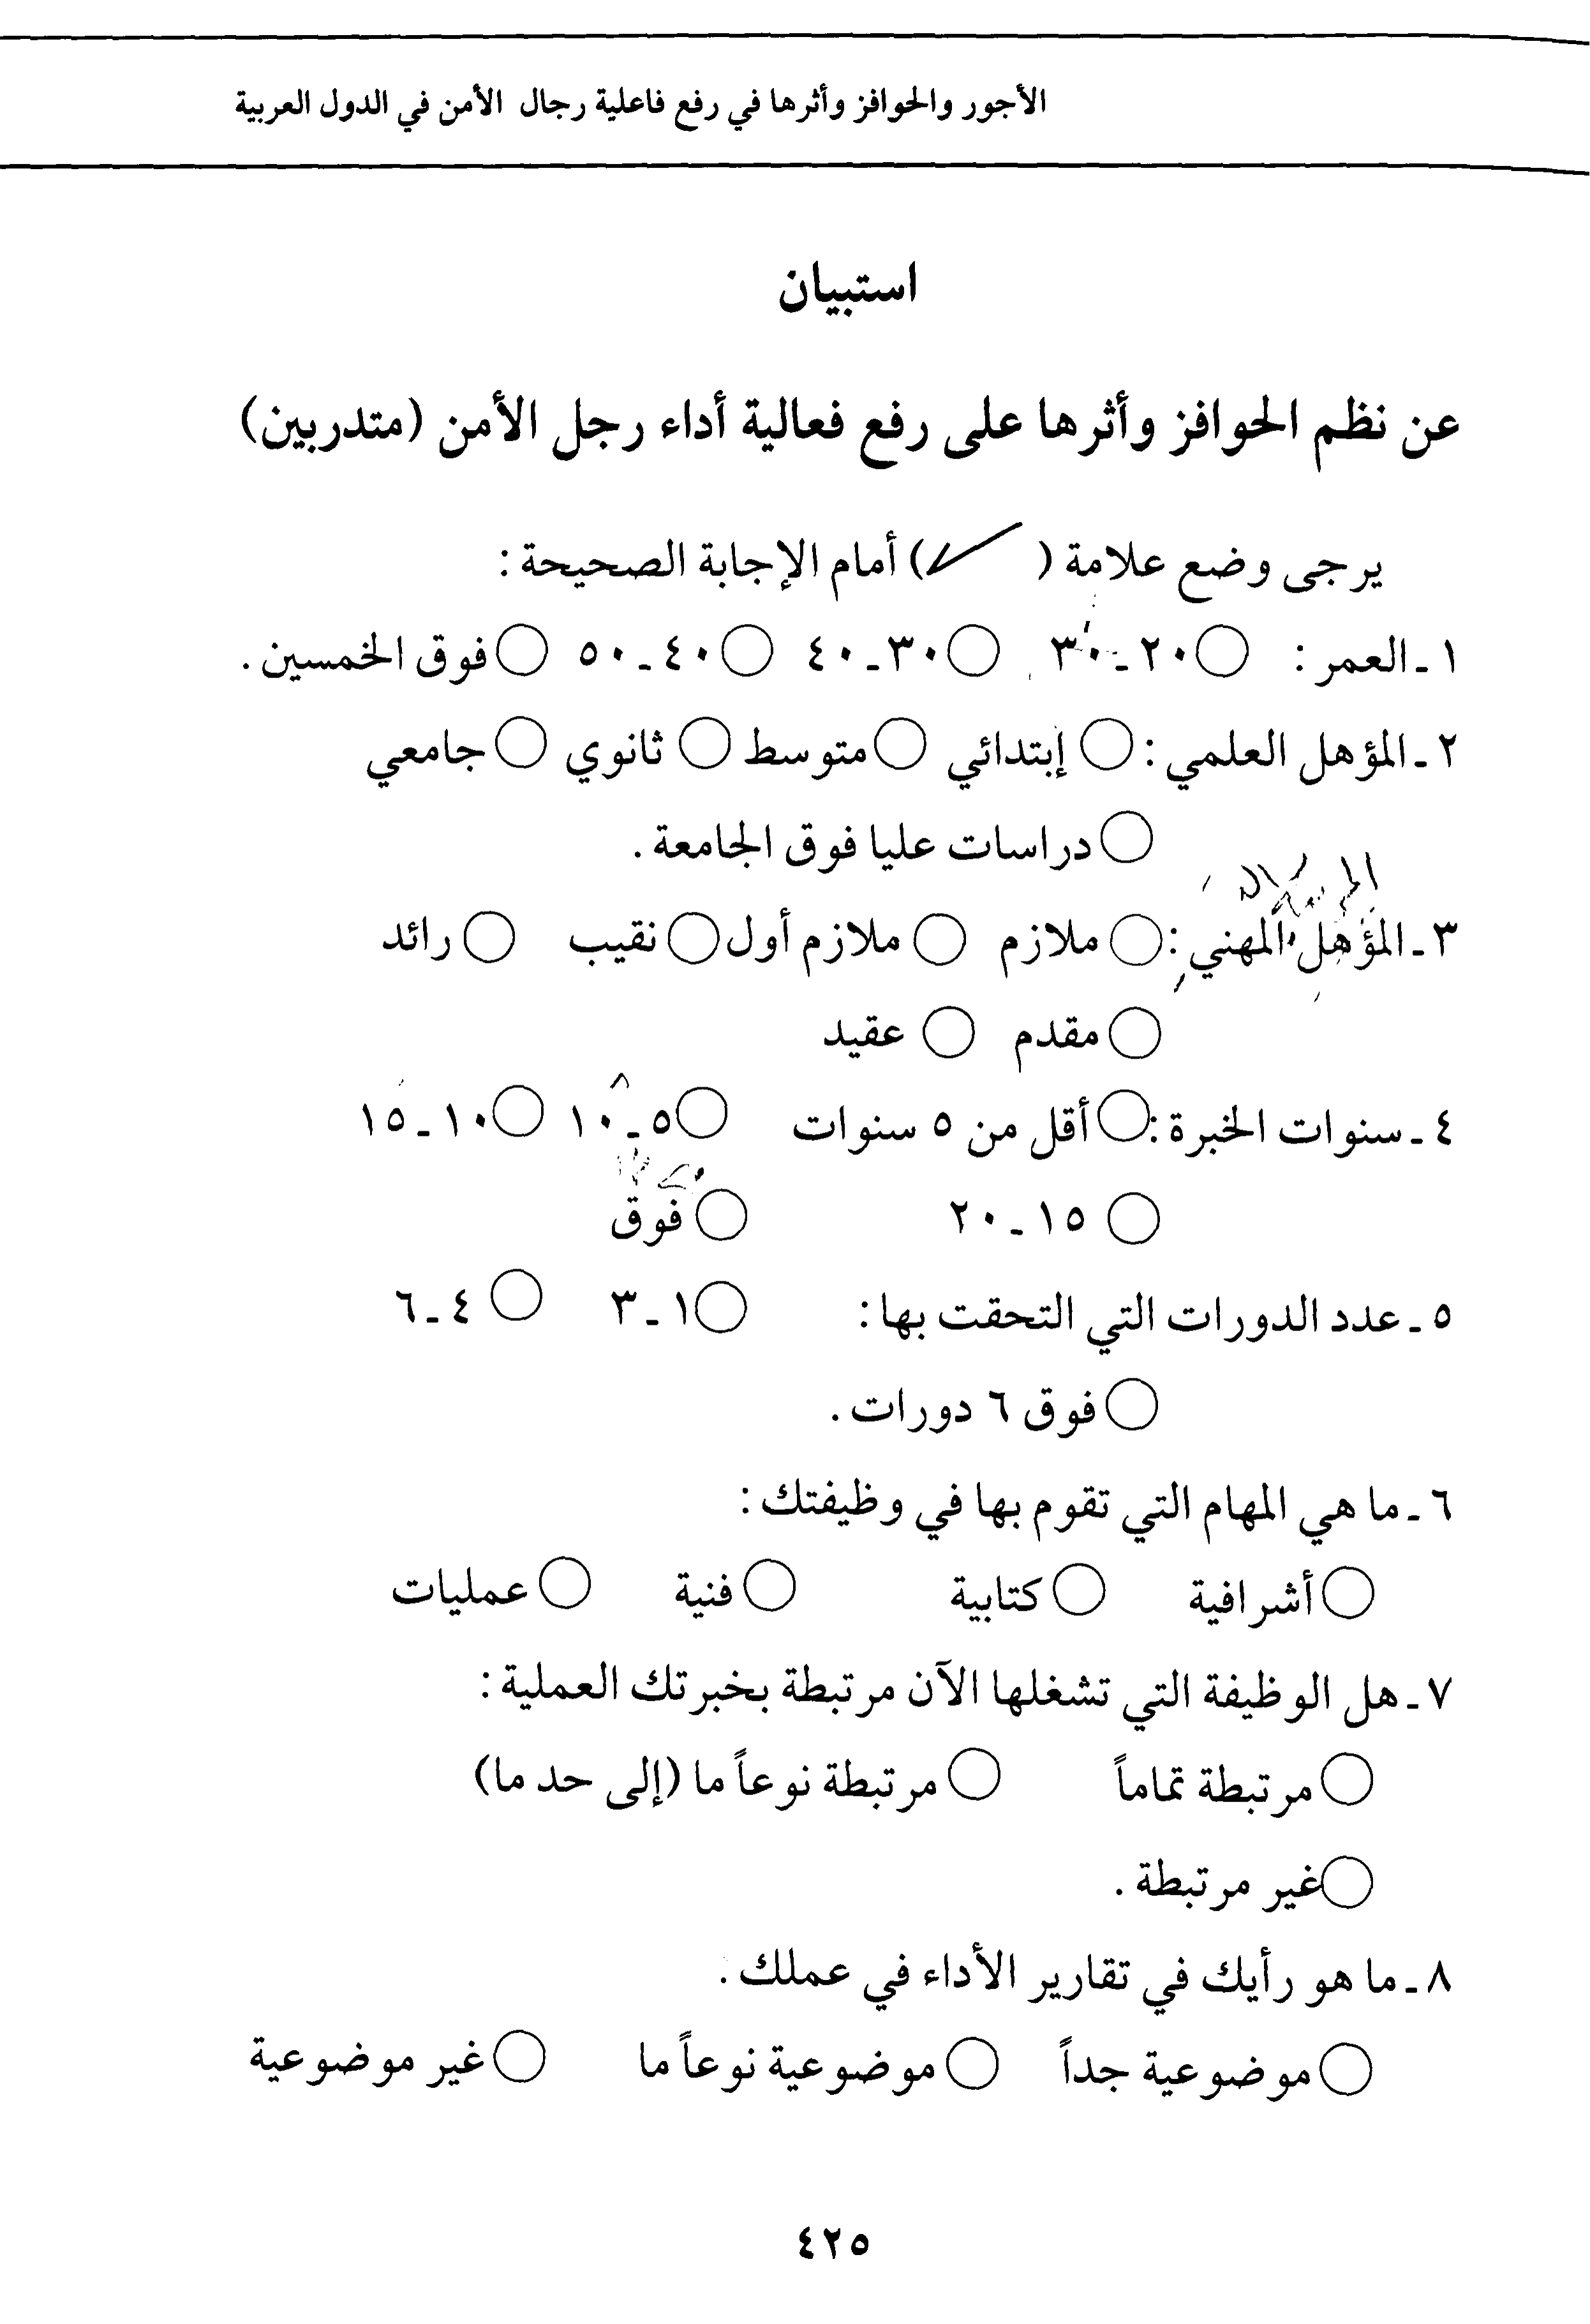 الأجور والحوافز وأثرها في رفع فاعلية رجال الأمن في الدول العربية
استبيان
عن نظم الحوافز وأثرها على رفع فعالية أداء رجل الأمن (متدربين)
يرجى وضع علامة ( ✓ ) أمام الإجابة الصحيحة :
١ ـ العمر : ○ ٢٠ ـ ٣٠ ○ ٣٠ ـ ٤٠ ○ ٤٠ ـ ٥٠ ○ فوق الخمسين .
٢ ـ المؤهل العلمي : ○ إبتدائي ○ متوسط ○ ثانوي ○ جامعي
○ دراسات عليا فوق الجامعة .
٣ ـ المؤهل المهني : ○ ملازم ○ ملازم أول ○ نقيب ○ رائد
○ مقدم ○ عقيد
٤ ـ سنوات الخبرة : ○ أقل من ٥ سنوات ○ ٥ ـ ١٠ ○ ١٠ ـ ١٥
○ ١٥ ـ ٢٠ ○ فوق
٥ ـ عدد الدورات التي التحقت بها : ○ ١ ـ ٣ ○ ٤ ـ ٦
○ فوق ٦ دورات .
٦ ـ ما هي المهام التي تقوم بها في وظيفتك :
○ أشرافية ○ كتابية ○ فنية ○ عمليات
٧ ـ هل الوظيفة التي تشغلها الآن مرتبطة بخبرتك العملية :
○ مرتبطة تماماً ○ مرتبطة نوعاً ما (إلى حد ما)
○ غير مرتبطة .
٨ ـ ما هو رأيك في تقارير الأداء في عملك :
○ موضوعية جداً ○ موضوعية نوعاً ما ○ غير موضوعية
٤٢٥